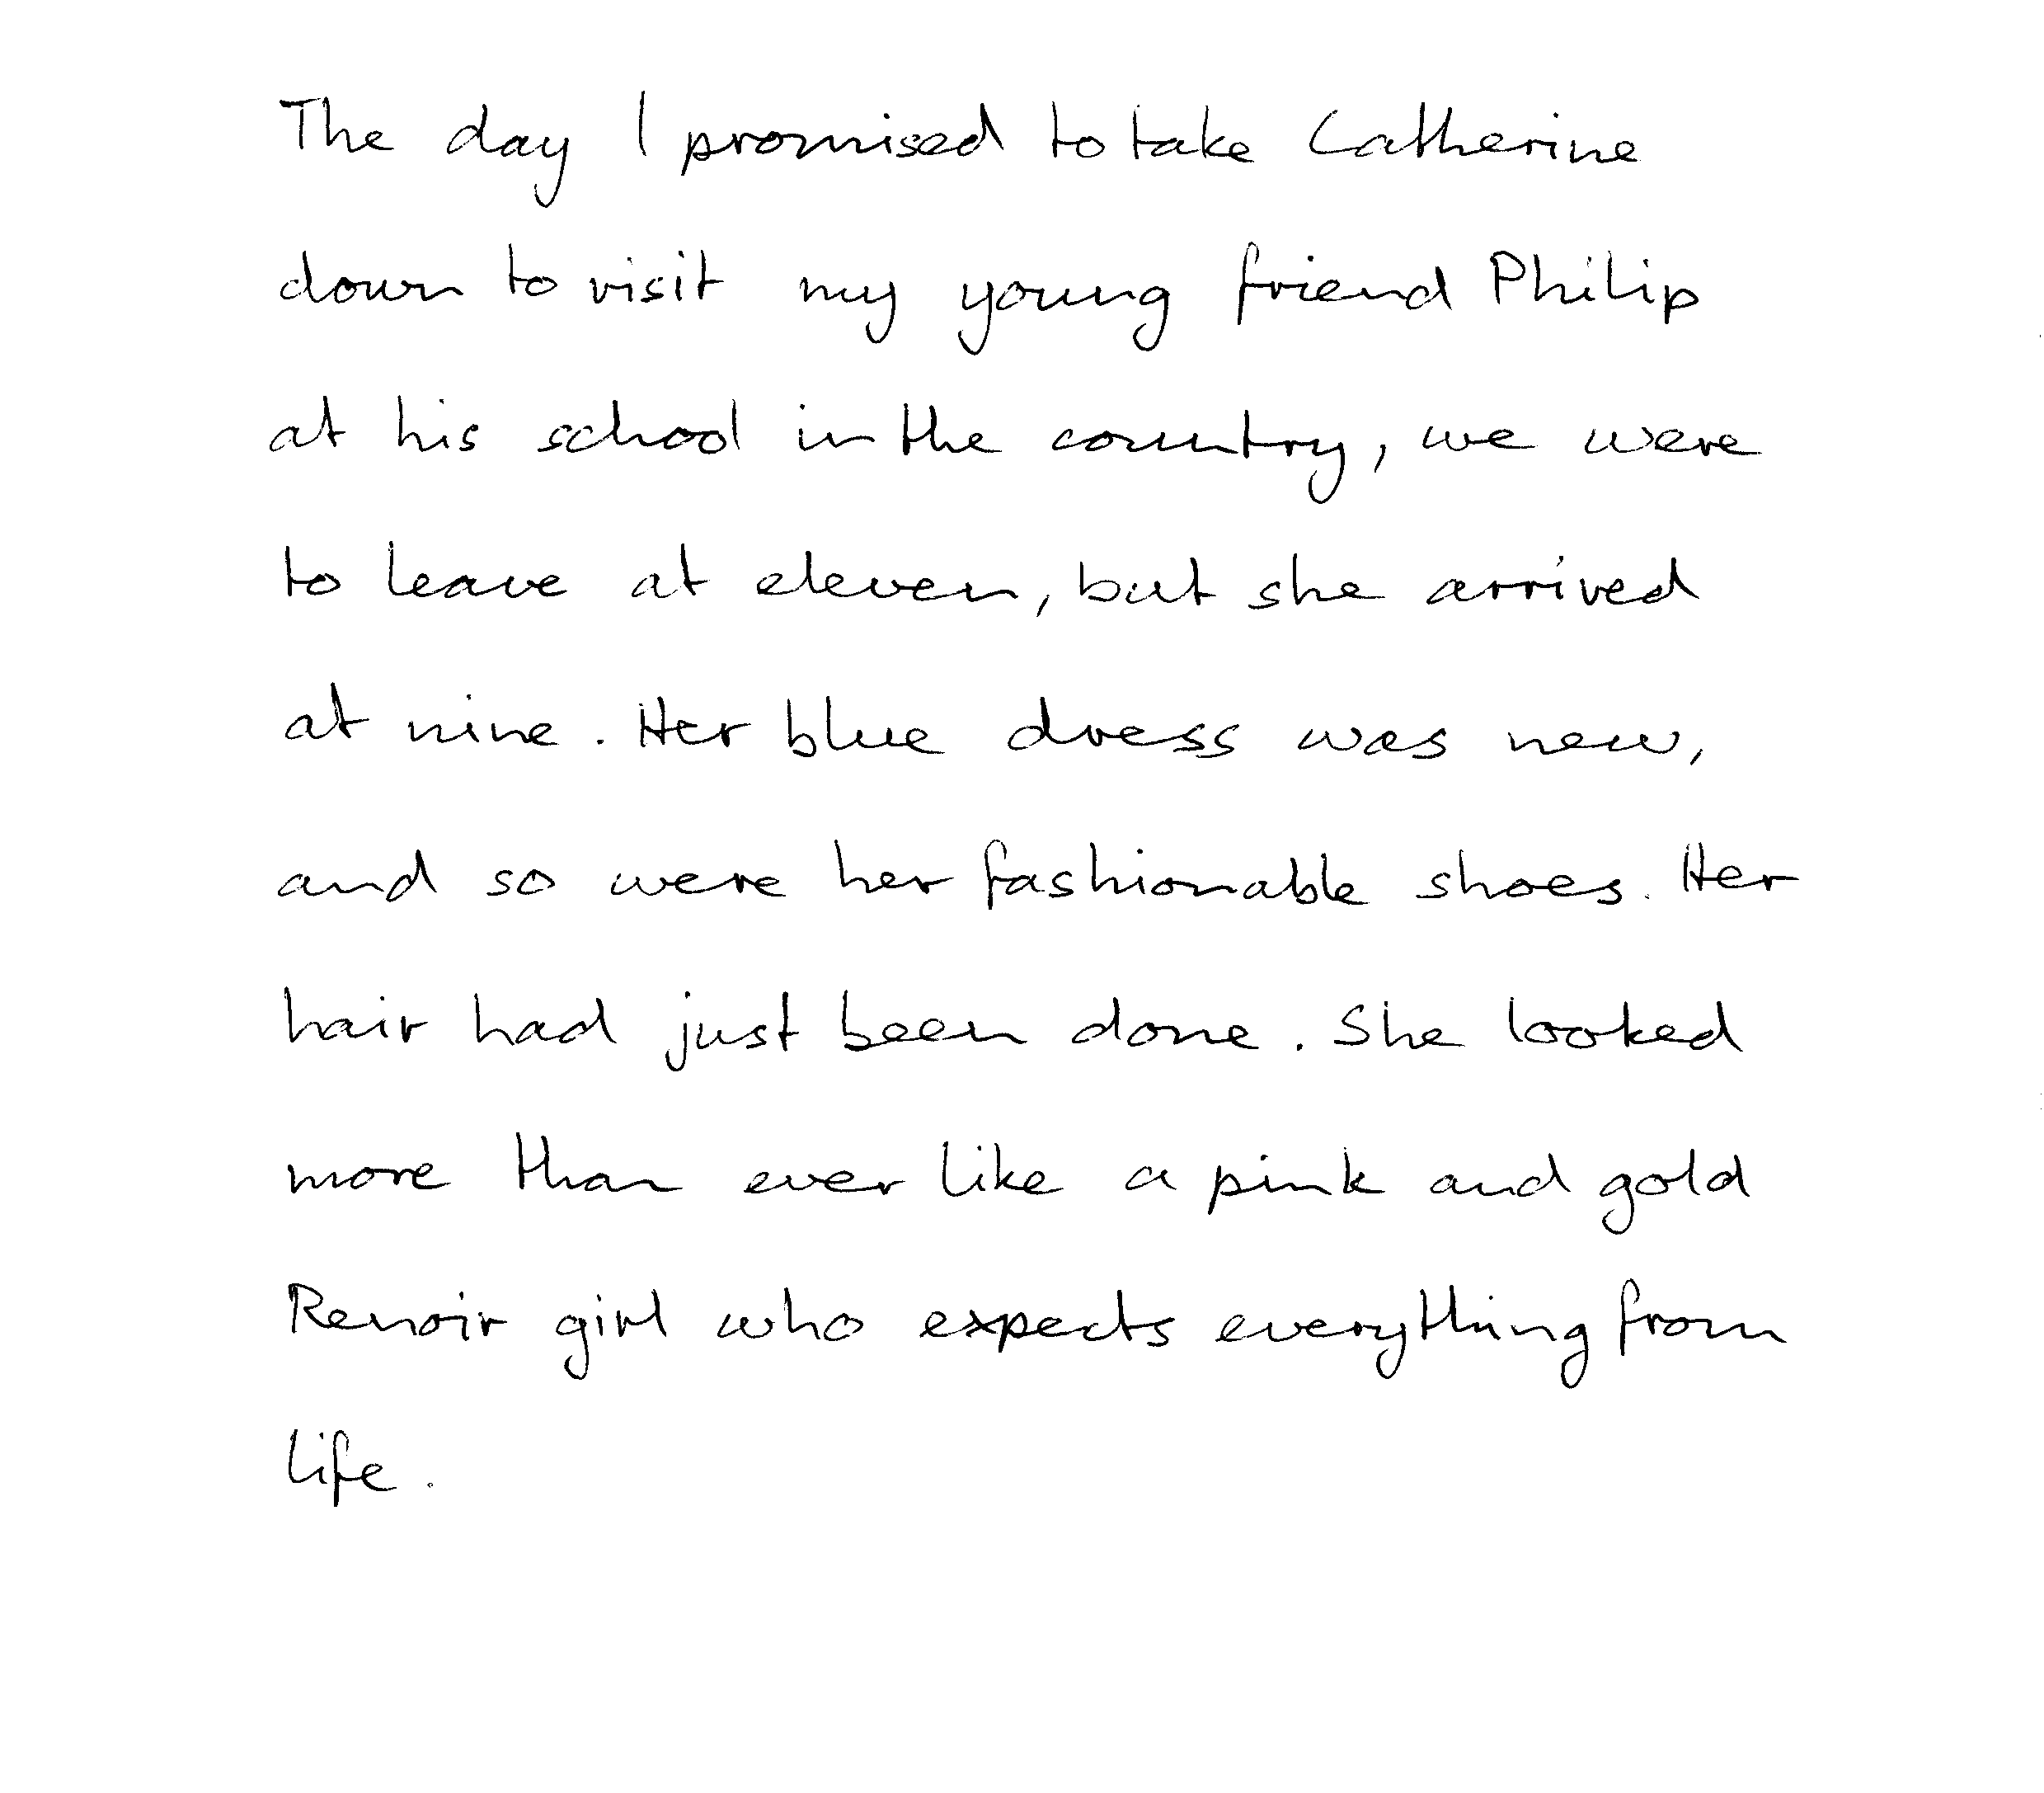 The day I promised to take Catherine
down to visit my young friend Philip
at his school in the country, we were
to leave at eleven, but she arrived
at nine. Her blue dress was new,
and so were her fashionable shoes. Her
hair had just been done. She looked
more than ever like a pink and gold
Renoir girl who expects everything from
life.